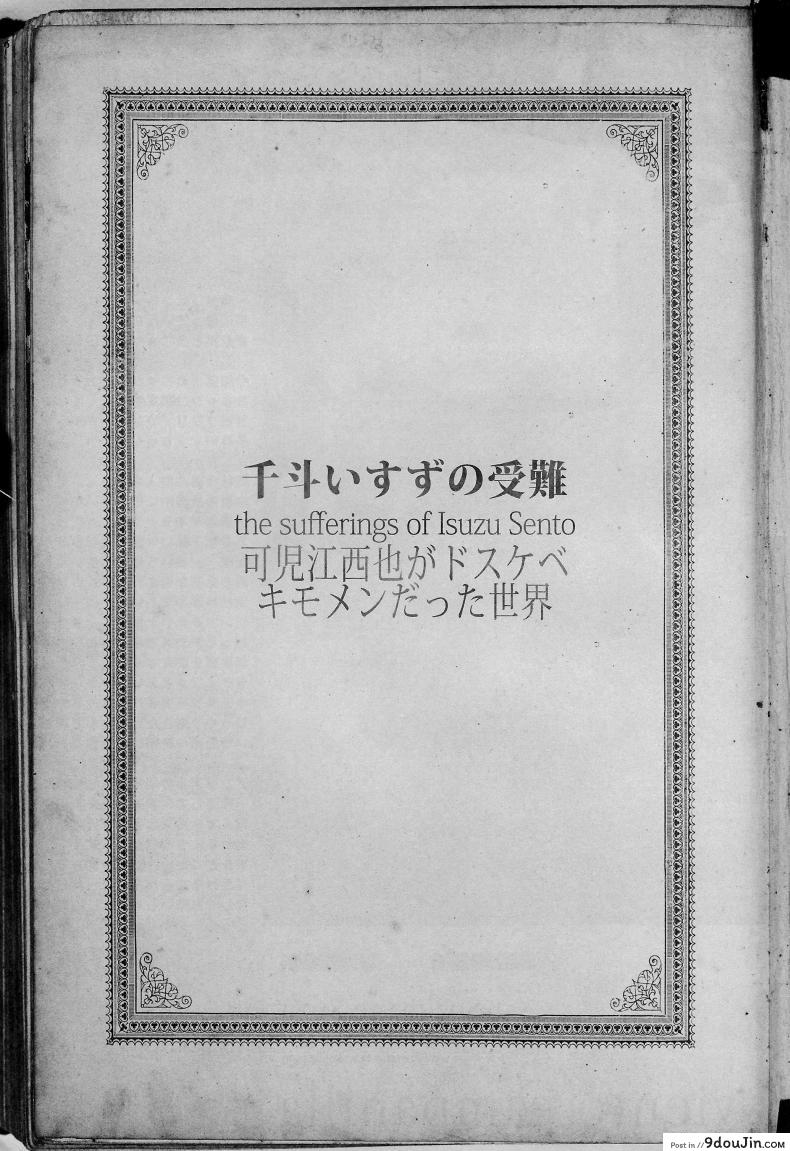 千斗いすずの受難
the sufferings of Isuzu Sento
可児江西也がドスケベ
キモメンだった世界
Post in // 9douJin.com